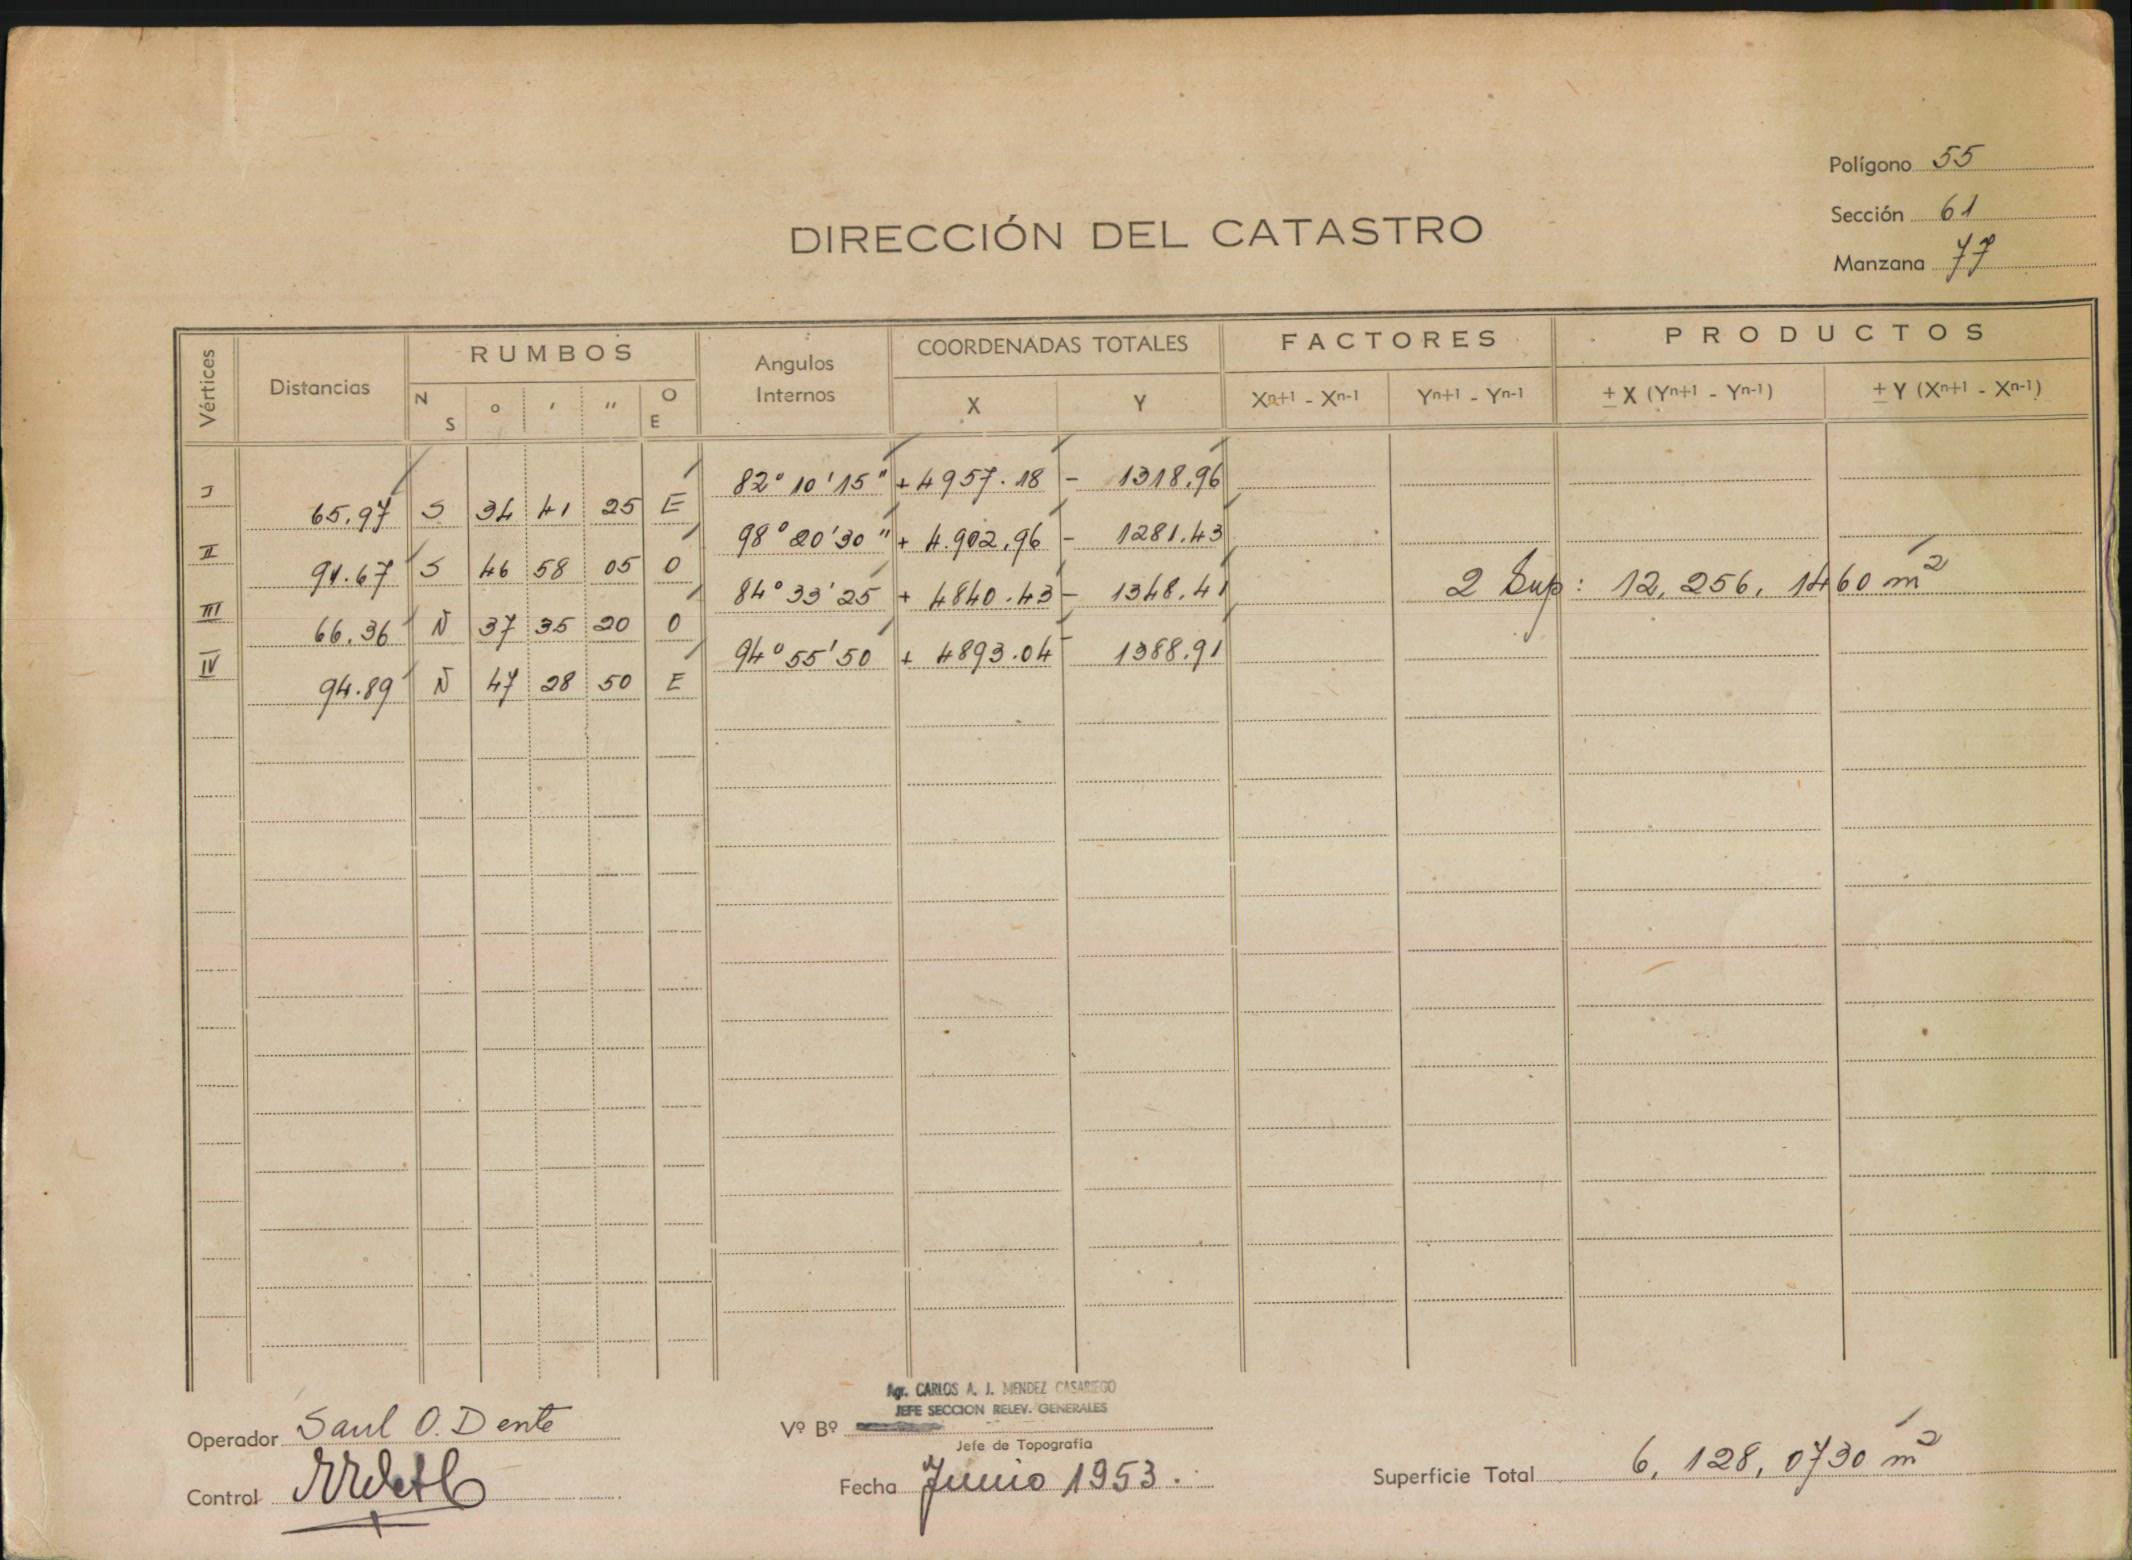 Polígono 55
Sección 61
Manzana 77
DIRECCIÓN DEL CATASTRO
Vértices Distancias RUMBOS Angulos Internos COORDENADAS TOTALES FACTORES PRODUCTOS
N S ° ' " O E X Y Xn+1 - Xn-1 Yn+1 - Yn-1 ± X (Yn+1 - Yn-1) ± Y (Xn+1 - Xn-1)
I 82° 10' 15" + 4957.18 - 1318.96
65.97 S 34 41 25 E
II 98° 20' 30" + 4.902.96 - 1281.43
91.67 S 46 58 05 O
III 84° 33' 25 + 4840.43 - 1348.41
2 Sup: 12,256,1460 m2
66.36 N 37 35 20 O
IV 94° 55' 50 + 4893.04 - 1388.91
94.89 N 47 28 50 E
Agr. CARLOS A. J. MENDEZ CASARIEGO
JEFE SECCION RELEV. GENERALES
Operador Saul O. Dente
Vº Bº
Jefe de Topografía
Control
Fecha Junio 1953.
Superficie Total 6,128,0730 m2